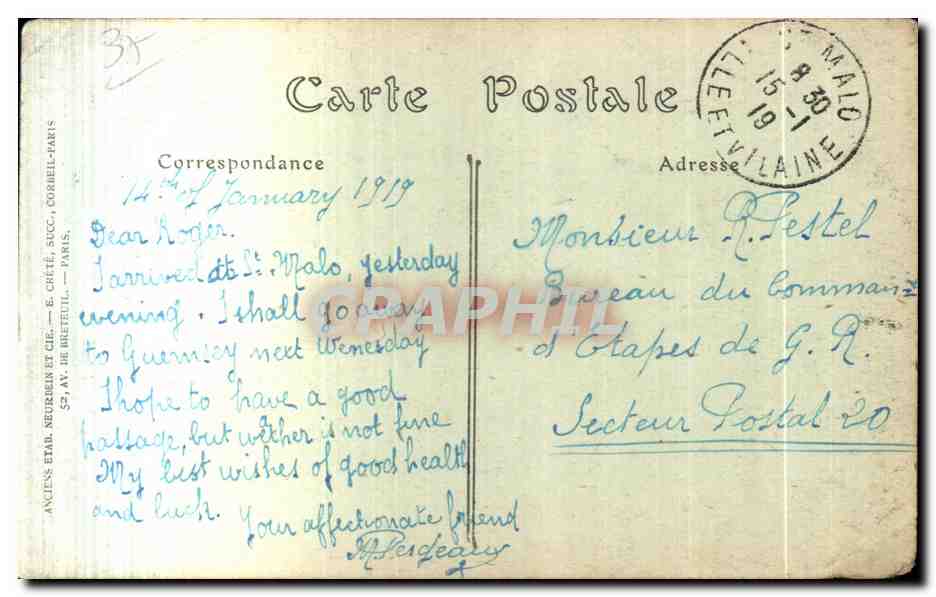 3x
Carte Postale
ST MALO
8 30
15 -1
19
ILLE ET VILAINE
Correspondance
Adresse
14th of January 1919
Dear Roger.
I arrived at St. Malo, yesterday
evening. I shall go away
to Guernsey next Wenesday
I hope to have a good
passage, but wether is not fine
My best wishes of good health
and luck. Your affectionate friend
Monsieur R. Pestel
Bureau du Command
d'Etapes de G. R.
Secteur Postal 20
ANCIENS ETAB. NEURDEIN ET CIE. — E. CRÉTÉ, SUCC., CORBEIL-PARIS
52, AV. DE BRETEUIL. — PARIS.
CARAPHIL